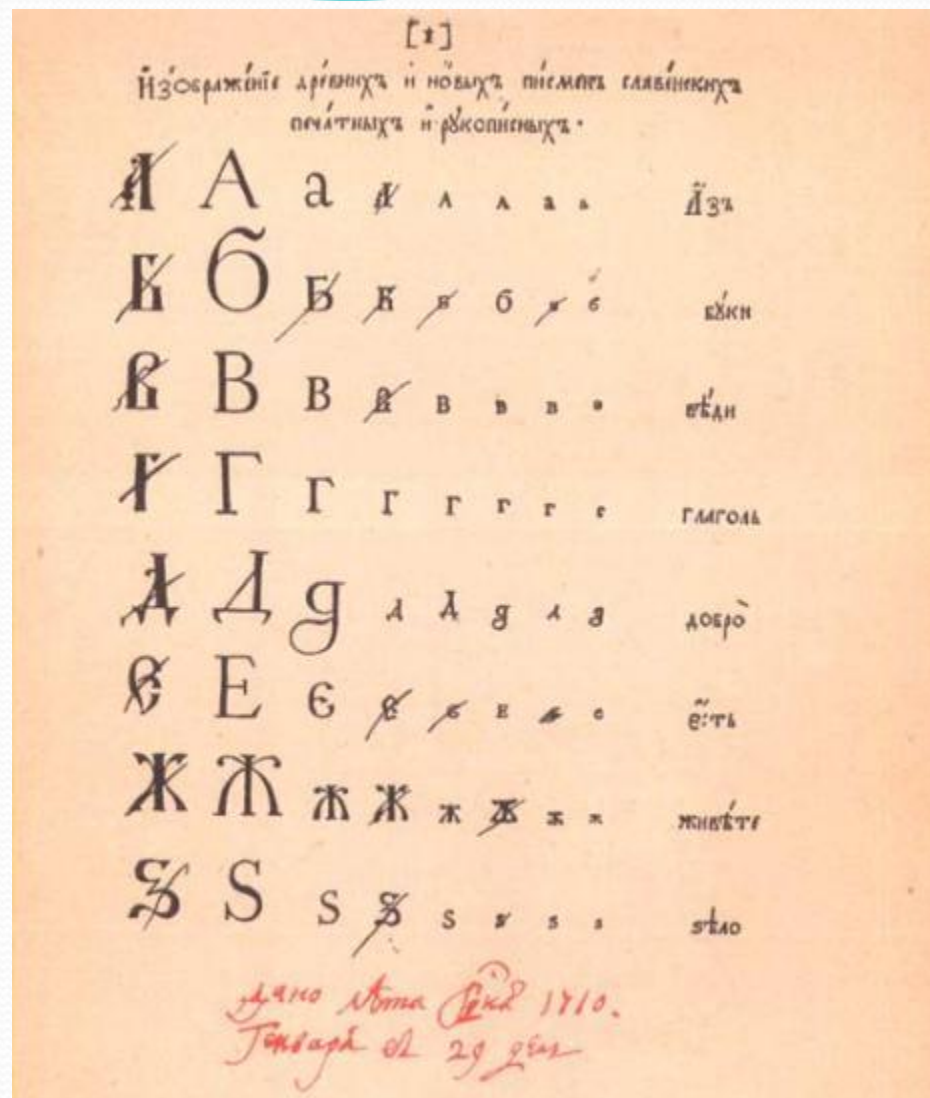 [1]
И҆зѡбраже́нїе дре́внихъ и҆ но́выхъ пи́сменъ славе́нскихъ
печа́тныхъ и҆ рꙋкопи́сныхъ.
А А а А а а а а А҆́зъ
Б Б Б Б Б б б б бꙋ́ки
В В В В В в в в вѣ́ди
Г Г Г Г Г г г г глаголь
Д Д д Д Д д д д добро̀
Є Е є є є е е е є҆́сть
Ж Ж ж Ж ж ж ж ж живѣ́те
Ѕ Ѕ ѕ Ѕ ѕ ѕ ѕ ѕ ѕѣло
дано лѣта 1710.
Генваря въ 29 день